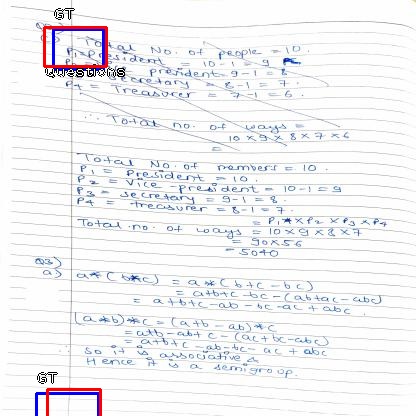 GT
Total No. of people = 10.
P1 = president = 10-1 = 9
Questions
president - 9-1 = 8
secretary = 8-1 = 7.
P4 = Treasurer = 7-1 = 6.
∴ Total no. of ways =
10 x 9 x 8 x 7 x 6
=
Total No. of members = 10.
P1 = President = 10.
P2 = Vice-president = 10-1 = 9
P3 = secretary = 9-1 = 8.
P4 = treasurer = 8-1 = 7.
= P1 x P2 x P3 x P4
Total no. of ways = 10 x 9 x 8 x 7
= 90 x 56
= 5040
Q3)
a) a*(b*c) = a*(b+c-bc)
= a+b+c-bc-(ab+ac-abc)
= a+b+c-ab-bc-ac+abc.
(a*b)*c = (a+b-ab)*c
= a+b-ab+c-(ac+bc-abc)
= a+b+c-ab-bc-ac+abc
∴ So it is associative &
Hence it is a semigroup.
GT